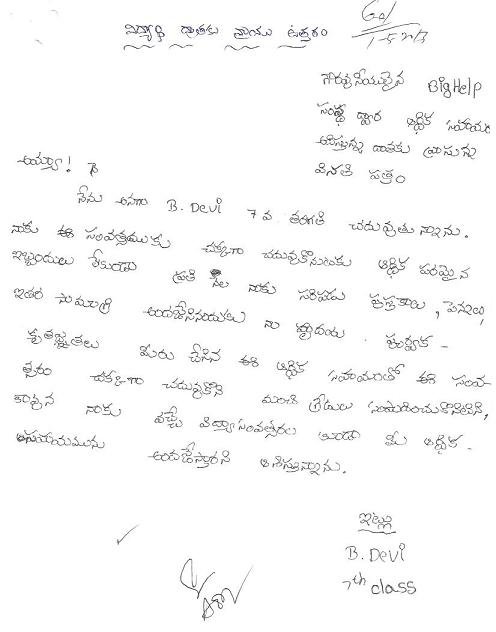 విద్యార్థి దాతకు వ్రాయు ఉత్తరం
గౌరవనీయులైన BigHelp
సంస్థ ద్వారా ఆర్థిక సహాయం
అందిస్తున్న దాతకు వ్రాయునది
వినతి పత్రం
అయ్యా!
నేను అనగా B. Devi 7 వ. తరగతి చదువుతున్నాను.
నాకు ఈ సంవత్సరముకు చక్కగా చదువుకొనుటకు ఆర్థిక పరమైన
ఇబ్బందులు లేకుండా ప్రతి నెల నాకు సరిపడు పుస్తకాలు, పెన్నులు,
ఇతర సామాగ్రి అందజేసినందుకు నా హృదయ పూర్వక-
కృతజ్ఞతలు మీరు చేసిన ఈ ఆర్థిక సహాయంతో ఈ సంవ-
త్సరం చక్కగా చదువుకొని మంచి గ్రేడులు సంపాదించుకొంటిని,
కావున నాకు వచ్చే విద్యాసంవత్సరం కూడా మీ ఆర్థిక-
సహాయమును అందజేస్తారని ఆశిస్తున్నాను.
ఇట్లు
B. Devi
7th class